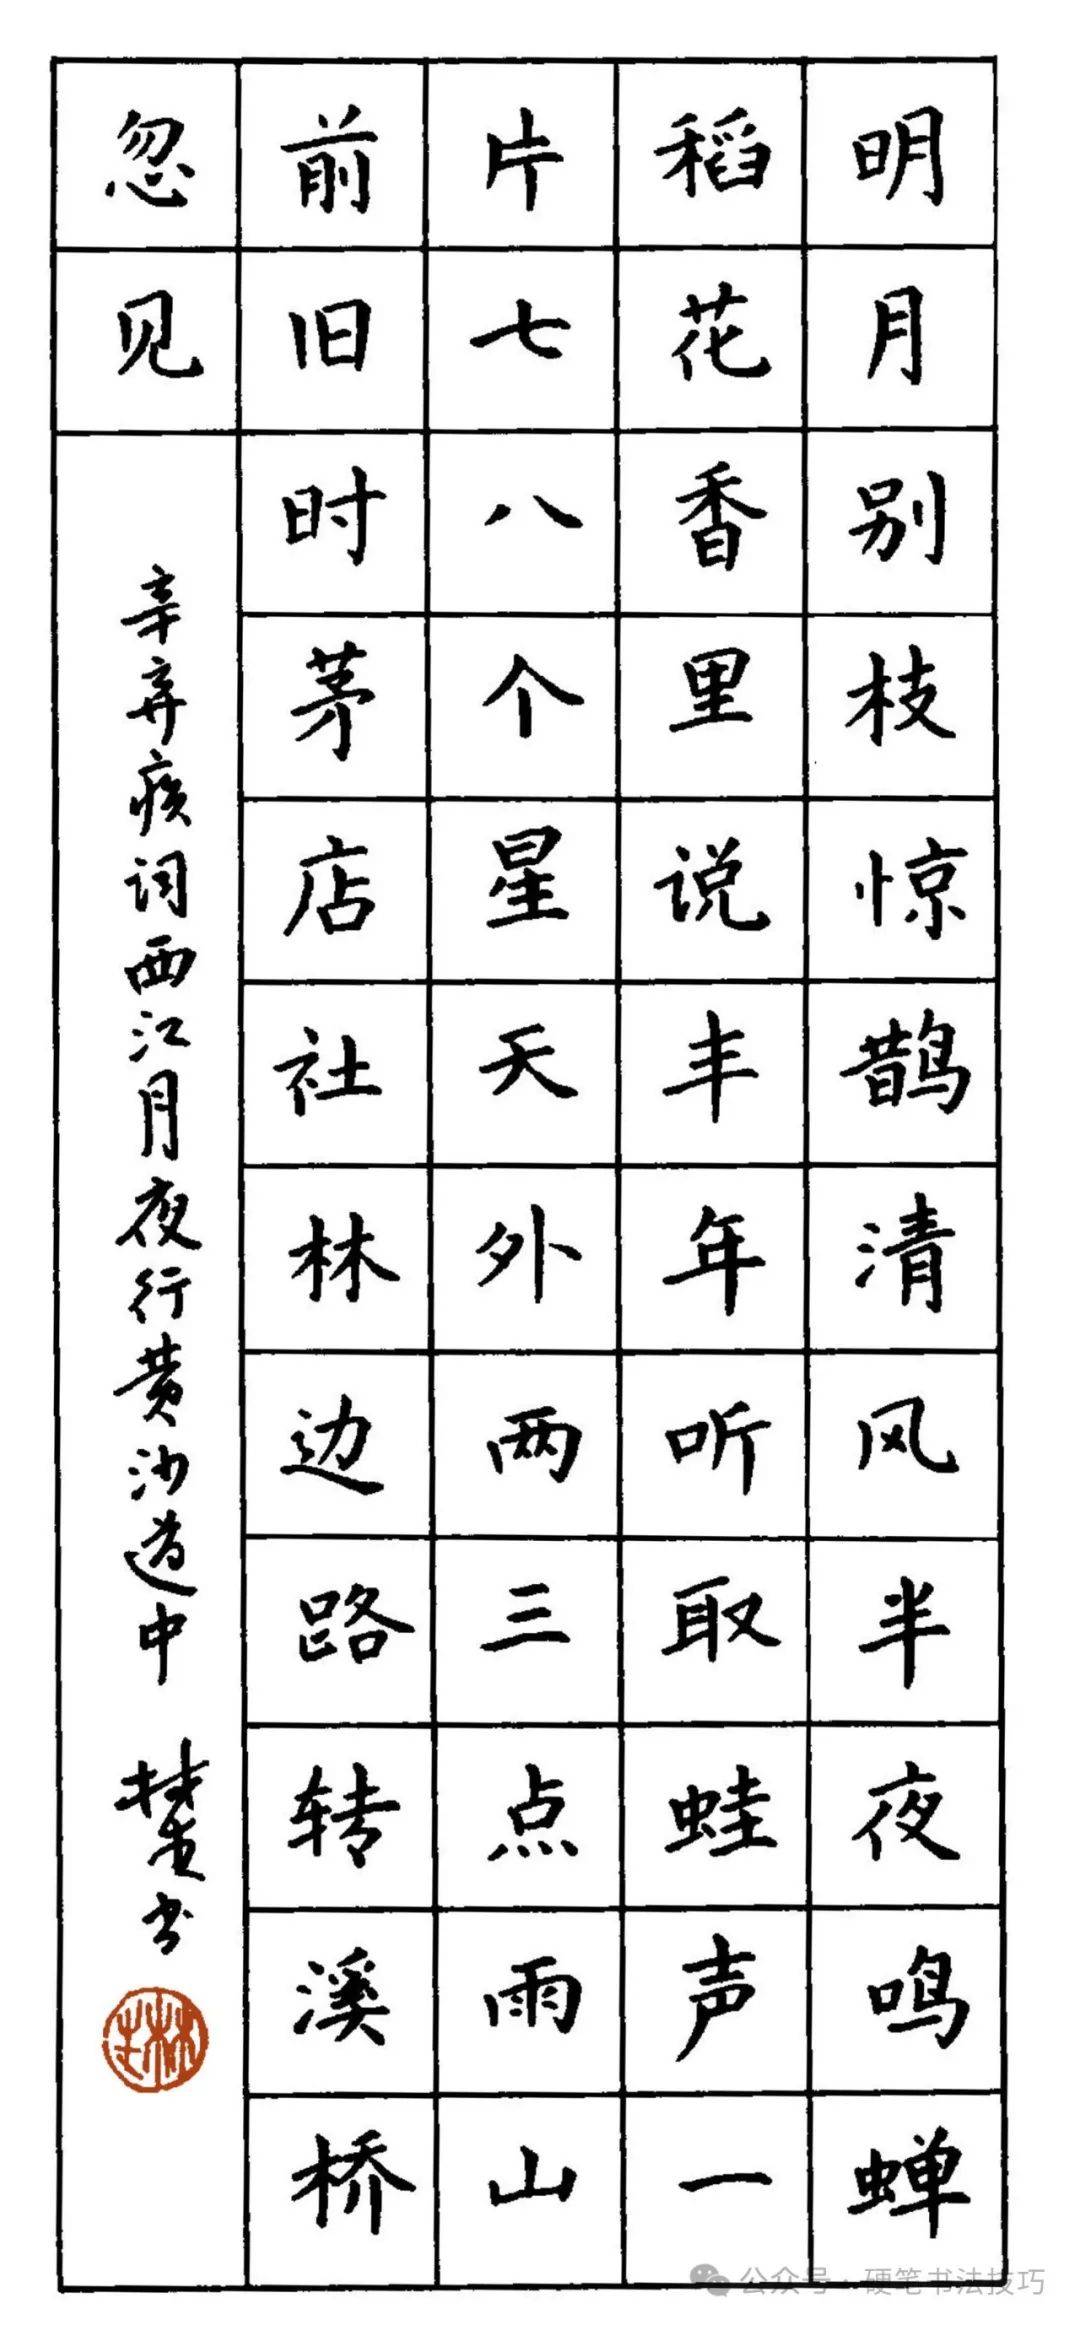 明月别枝惊鹊清风半夜鸣蝉
稻花香里说丰年听取蛙声一
片七八个星天外两三点雨山
前旧时茅店社林边路转溪桥
忽见
辛弃疾词西江月夜行黄沙道中 书
公众号 · 硬笔书法技巧